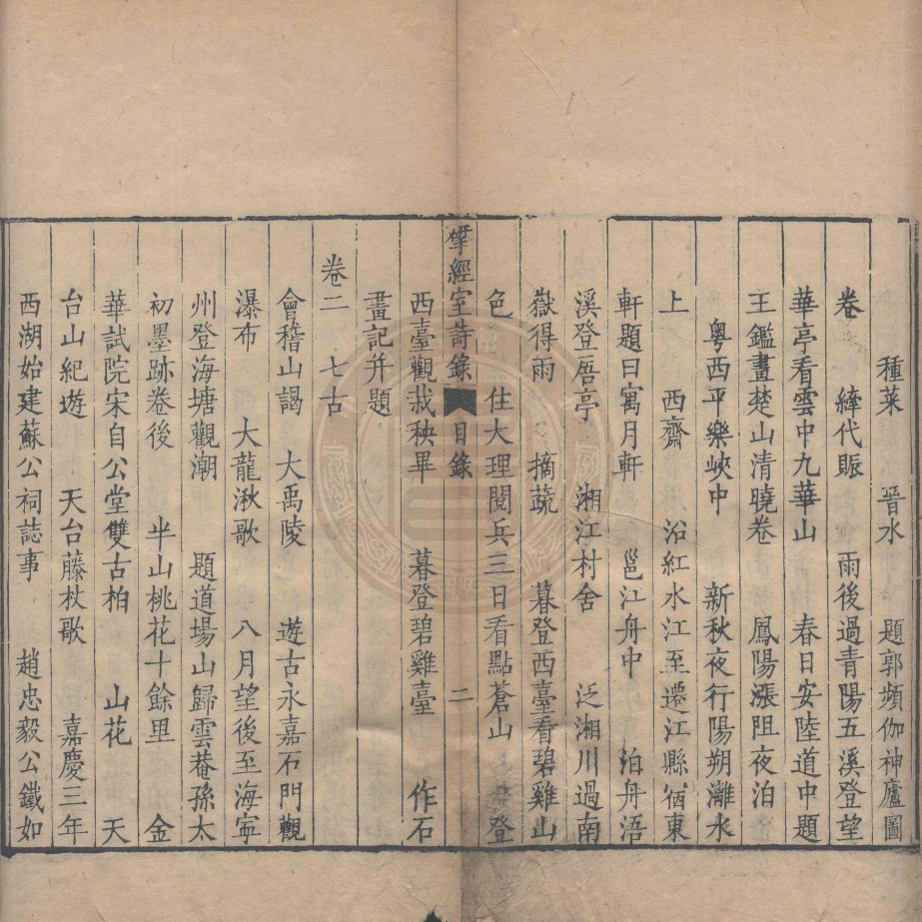 種菜 晉水 題郭頻伽神廬圖
卷 縴代賑 雨後過青陽五溪登望
華亭看雲中九華山 春日安陸道中題
王鑑畫楚山清曉卷 鳳陽漲阻夜泊
粤西平樂峽中 新秋夜行陽朔灘水
上 西齋 㳂紅水江至遷江縣宿東
軒題曰寓月軒 邕江舟中 泊舟浯
溪登峿亭 湘江村舍 泛湘川過南
嶽得雨 摘蔬 暮登西臺看碧雞山
色 住大理閱兵三日看點蒼山 登
西臺觀栽秧畢 暮登碧雞臺 作石
畫記并題
揅經室詩錄 目錄 二
卷二 七古
會稽山謁 大禹陵 遊古永嘉石門觀
瀑布 大龍湫歌 八月望後至海寧
州登海塘觀潮 題道場山歸雲菴孫太
初墨跡卷後 半山桃花十餘里 金
華試院宋自公堂雙古柏 山花 天
台山紀遊 天台藤杖歌 嘉慶三年
西湖始建蘇公祠誌事 趙忠毅公鐵如